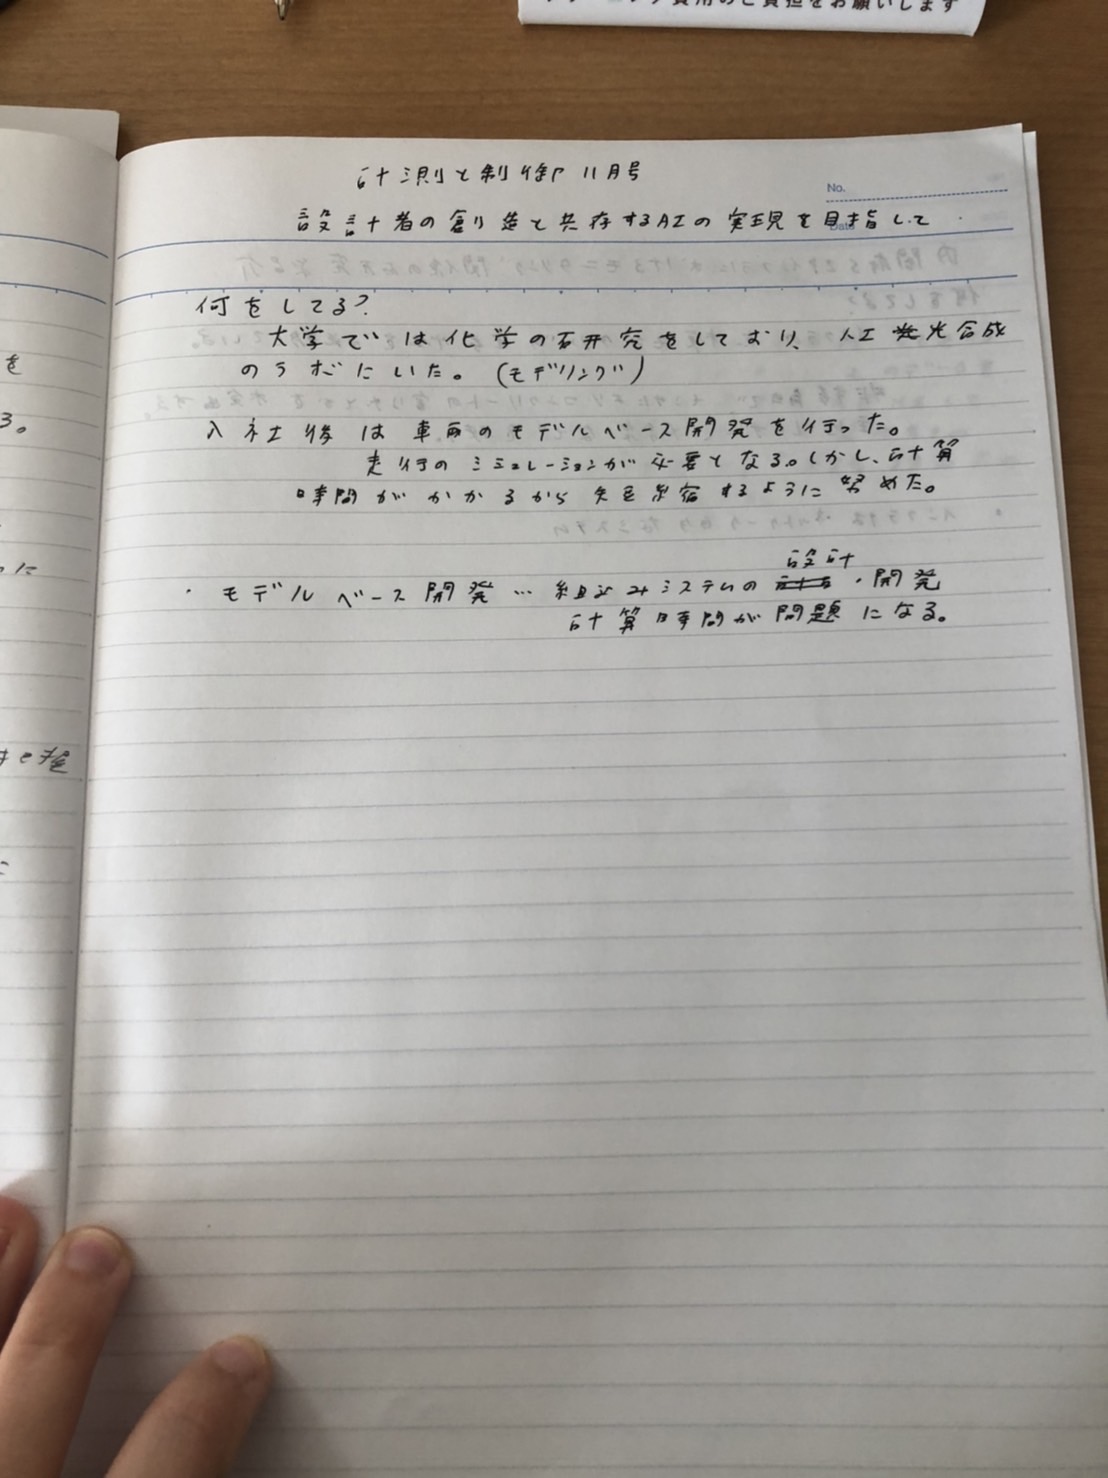 費用のご負担をお願いします
計測と制御 11月号
No.
設計者の創造と共存するAIの実現を目指して
Date
何をしてる?
大学では化学の研究をしており、人工光合成
のラボにいた。(モデリング)
入社後は車両のモデルベース開発を行った。
走行のシミュレーションが必要となる。しかし、計算
時間がかかるから短縮するように努めた。
設計
・モデルベース開発…組込みシステムの・開発
計算時間が問題になる。
を
る。
に